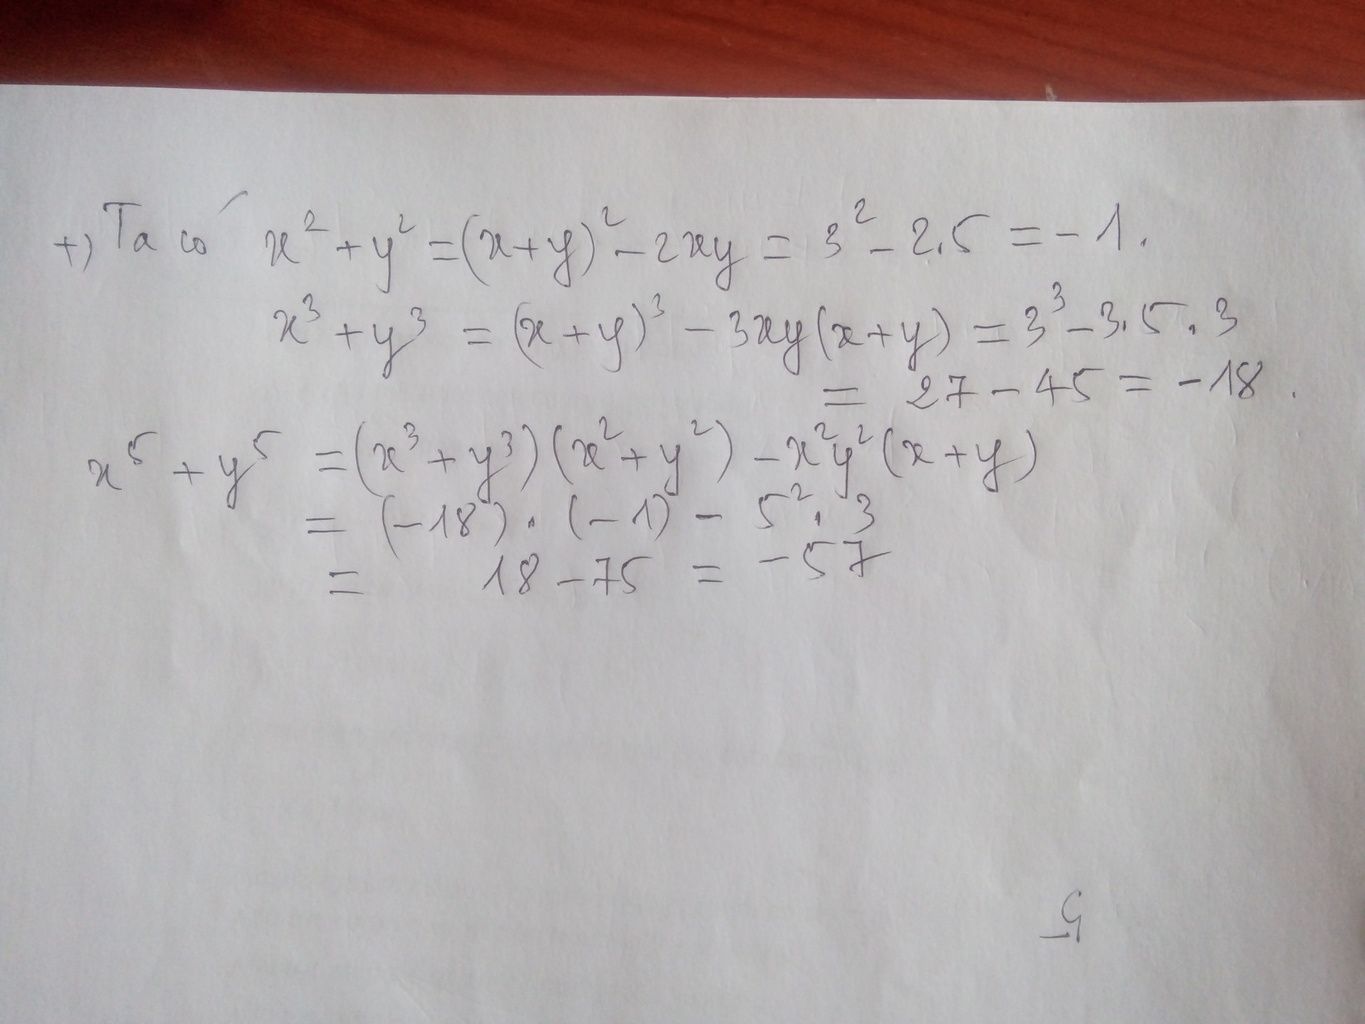 +) Ta có x² + y² = (x+y)² - 2xy = 3² - 2.5 = -1.
x³ + y³ = (x+y)³ - 3xy(x+y) = 3³ - 3.5.3
= 27 - 45 = -18.
x⁵ + y⁵ = (x³+y³)(x²+y²) - x²y²(x+y)
= (-18).(-1) - 5².3
= 18 - 75 = -57